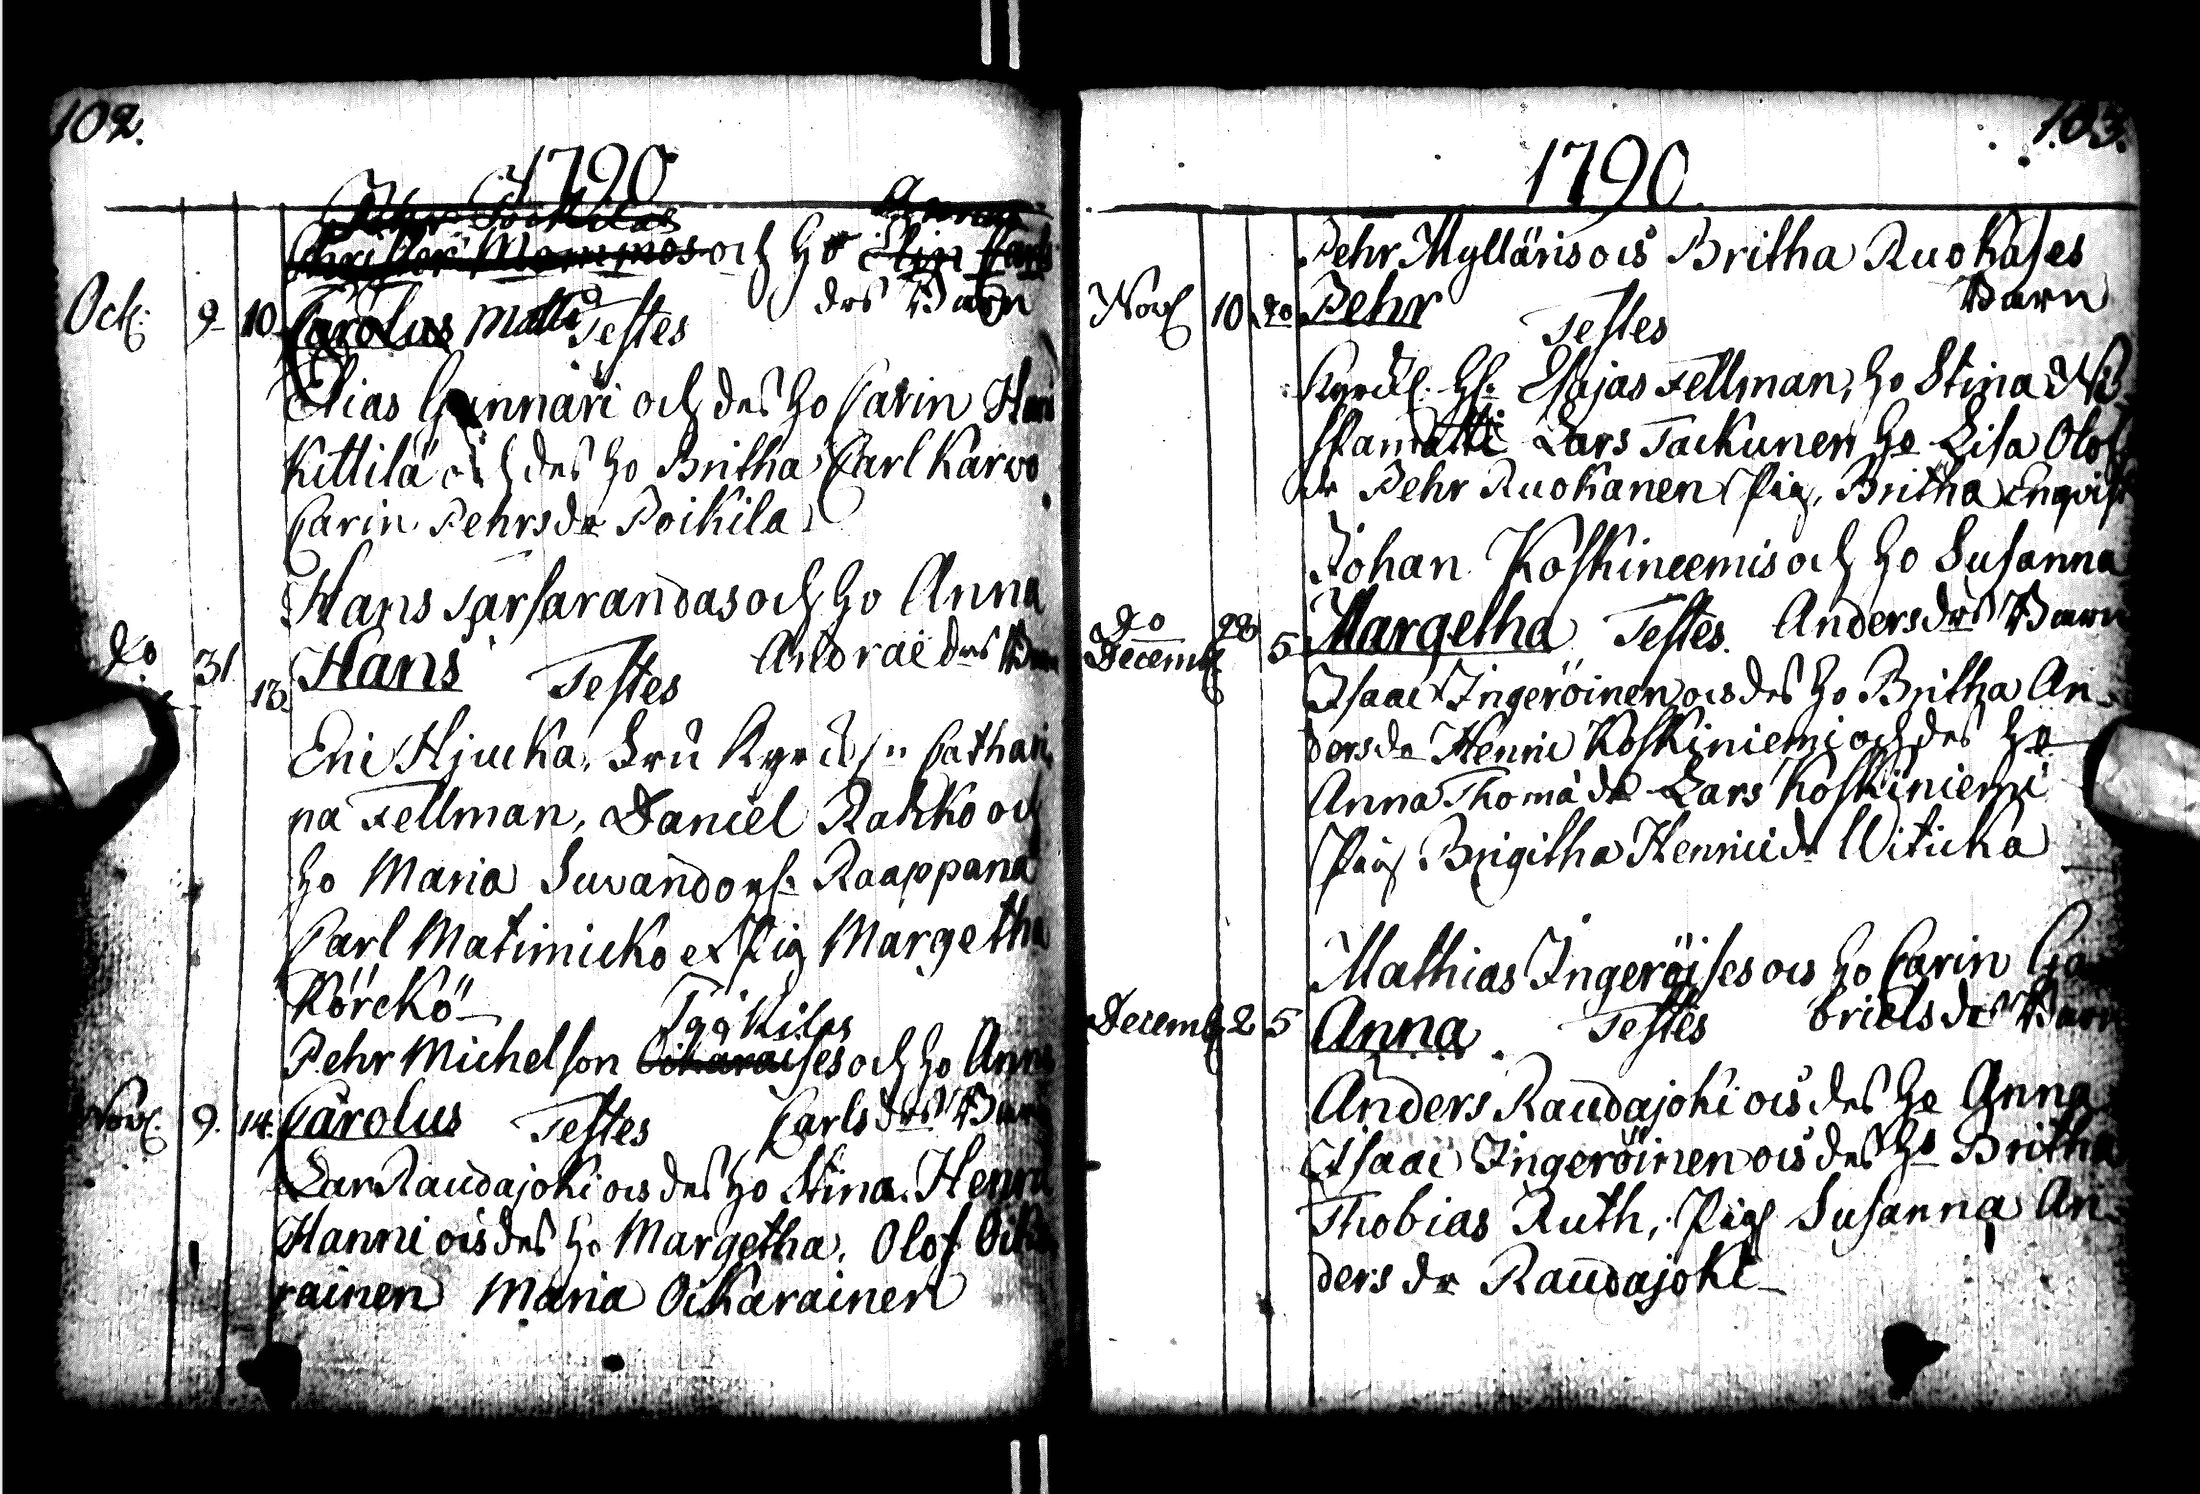 102.
1790
Pehr Poikilas Anna
Christer Mommos och ho Elin Carls
drs Barn
Oct: 9 10 Carolus Matts Testes
Elias Gunnari och des ho Carin Hen
Kittilä och des ho Britha Carl Karvo
Carin Pehrsdr Poikila
Hans Tarsarandas och ho Anna
do 31 13 Hans Testes Andrae drs Barn
Eric Hjucka, Fru Kyrck Cathari
na Fellman, Daniel Rahko och
ho Maria Suvando Raappana
Carl Matinicko et Pig Margetha
Körckö
Pehr Michelson Oikaraises och ho Anna
Novr. 9. 14. Carolus Testes Carls drs Barn
Lars Raudajoki ocs des ho Stina. Henric
Hanni ocs des ho Margetha. Olof Oika
rainen Maria Oikarainen
103.
1790
Pehr Mylläris ocs Britha Ruokases
Barn
Nov 10 20 Pehr Testes
Kyrck. H. Esajas Fellman, ho Stina
Lars Tackunen ho Lisa Olof
dr Pehr Ruokanen Pig, Britha Enqvist
Johan Koskineemis och ho Susanna
do 28 Decemb 5 Margetha Testes. Anders drs Barn
Isaac Ingeröinen ocs des ho Britha An-
dersdr Henric Koskiniemi och des ho
Anna Thomædr Lars Koskiniemi
Pig Brigitha Henricidr Witicka
Mathias Ingeröises ocs ho Carin Ga
Decemb 2 5 Anna Testes briels drs Barn
Anders Raudajoki ocs des ho Anna
Isaac Ingeröinen ocs des ho Britha
Thobias Ruth, Pig Susanna An-
ders dr Raudajoki